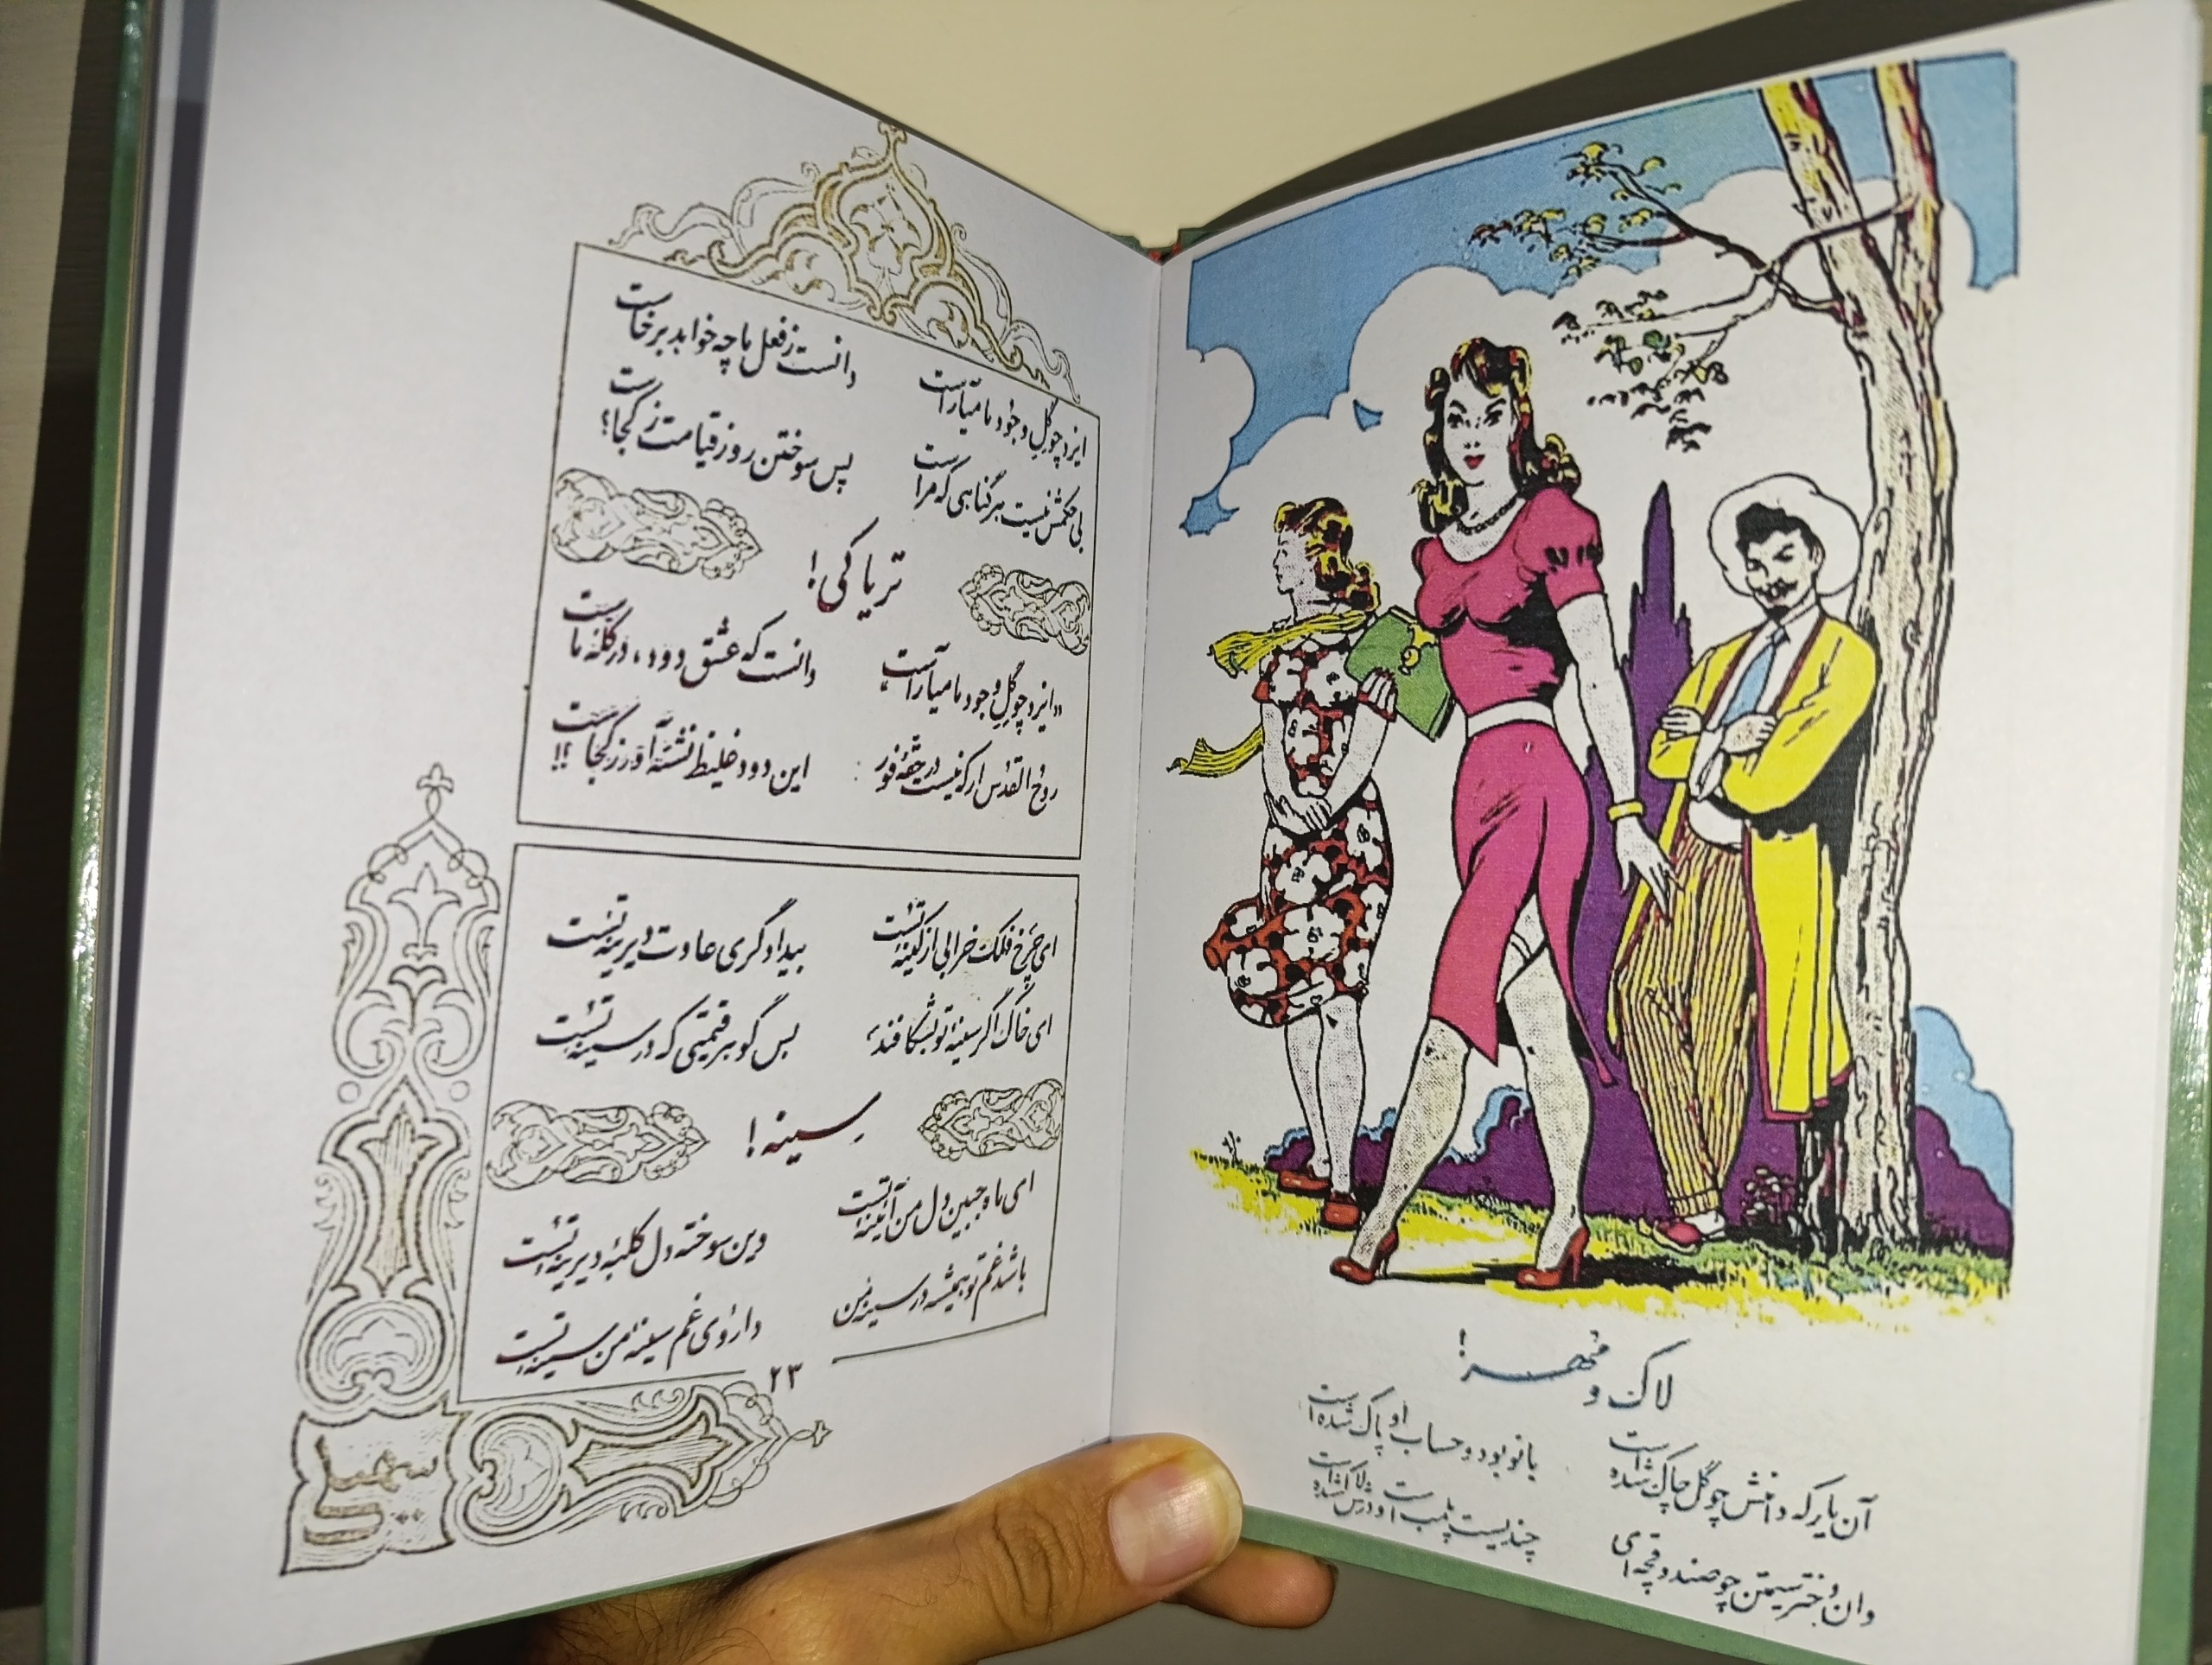 ایزد چو گل وجود ما میآراست دانست ز فعل ما چه خواهد برخاست
بی حکمش نیست هر گناهی که مراست پس سوختن روز قیامت ز کجاست؟
تریاکی!
«ایزد چو گل وجود ما میآراست» دانست که عشق دود، در کلهٔ ماست
روح القدس ار که نیست در حقهٔ فور این دود غلیظ نشئه آور ز کجاست؟!!
ای چرخ فلک خرابی از کینهٔ تست بیدادگری عادت دیرینهٔ تست
ای خاک اگر سینهٔ تو بشکافند، بس گوهر قیمتی که در سینهٔ تست
سینه!
ای ماه جبین دل من آئینهٔ تست وین سوخته دل کلبهٔ دیرینهٔ تست
باشد غم تو همیشه در سینهٔ من داروی غم سینهٔ من سینهٔ تست
۲۳
سهیلی
لاک و مُهر!
آن یار که دامنش چو گل چاک شده است با تو بود و حساب او پاک شده است
وان دختر سیمتن چو صندوقچه‌ای چندیست پلمب است و درش لاک شده است